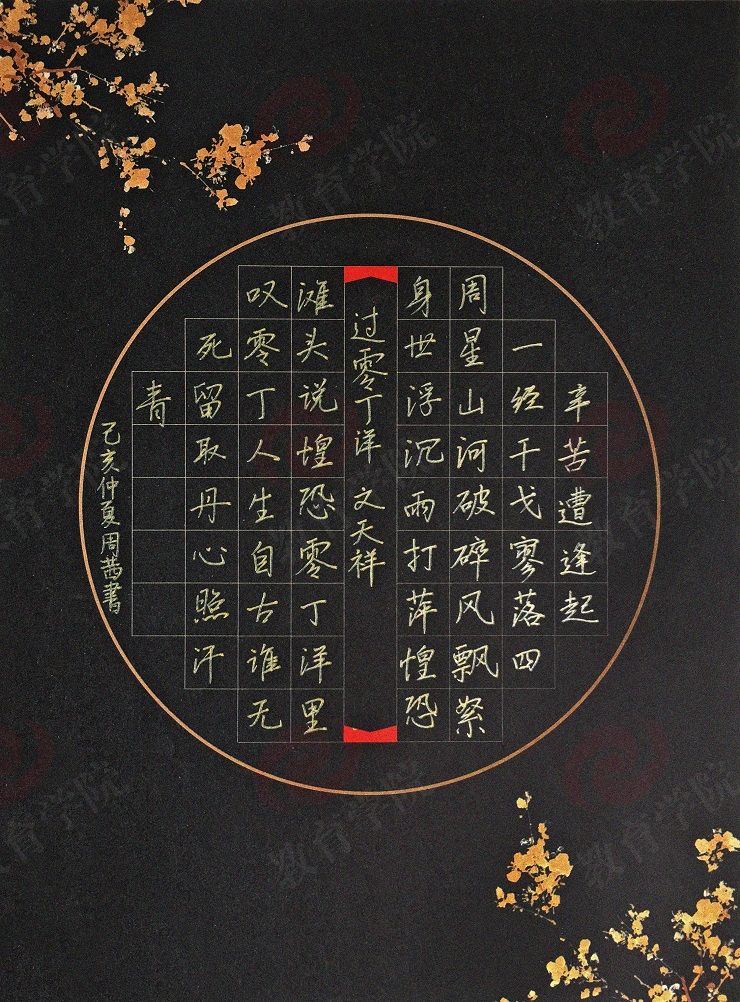 辛苦遭逢起
一经干戈寥落四
周星山河破碎风飘絮
身世浮沉雨打萍惶恐
过零丁洋 文天祥
滩头说惶恐零丁洋里
叹零丁人生自古谁无
死留取丹心照汗
青
己亥仲夏周茜書
教育学院
教育学院
教育学院
教育学院